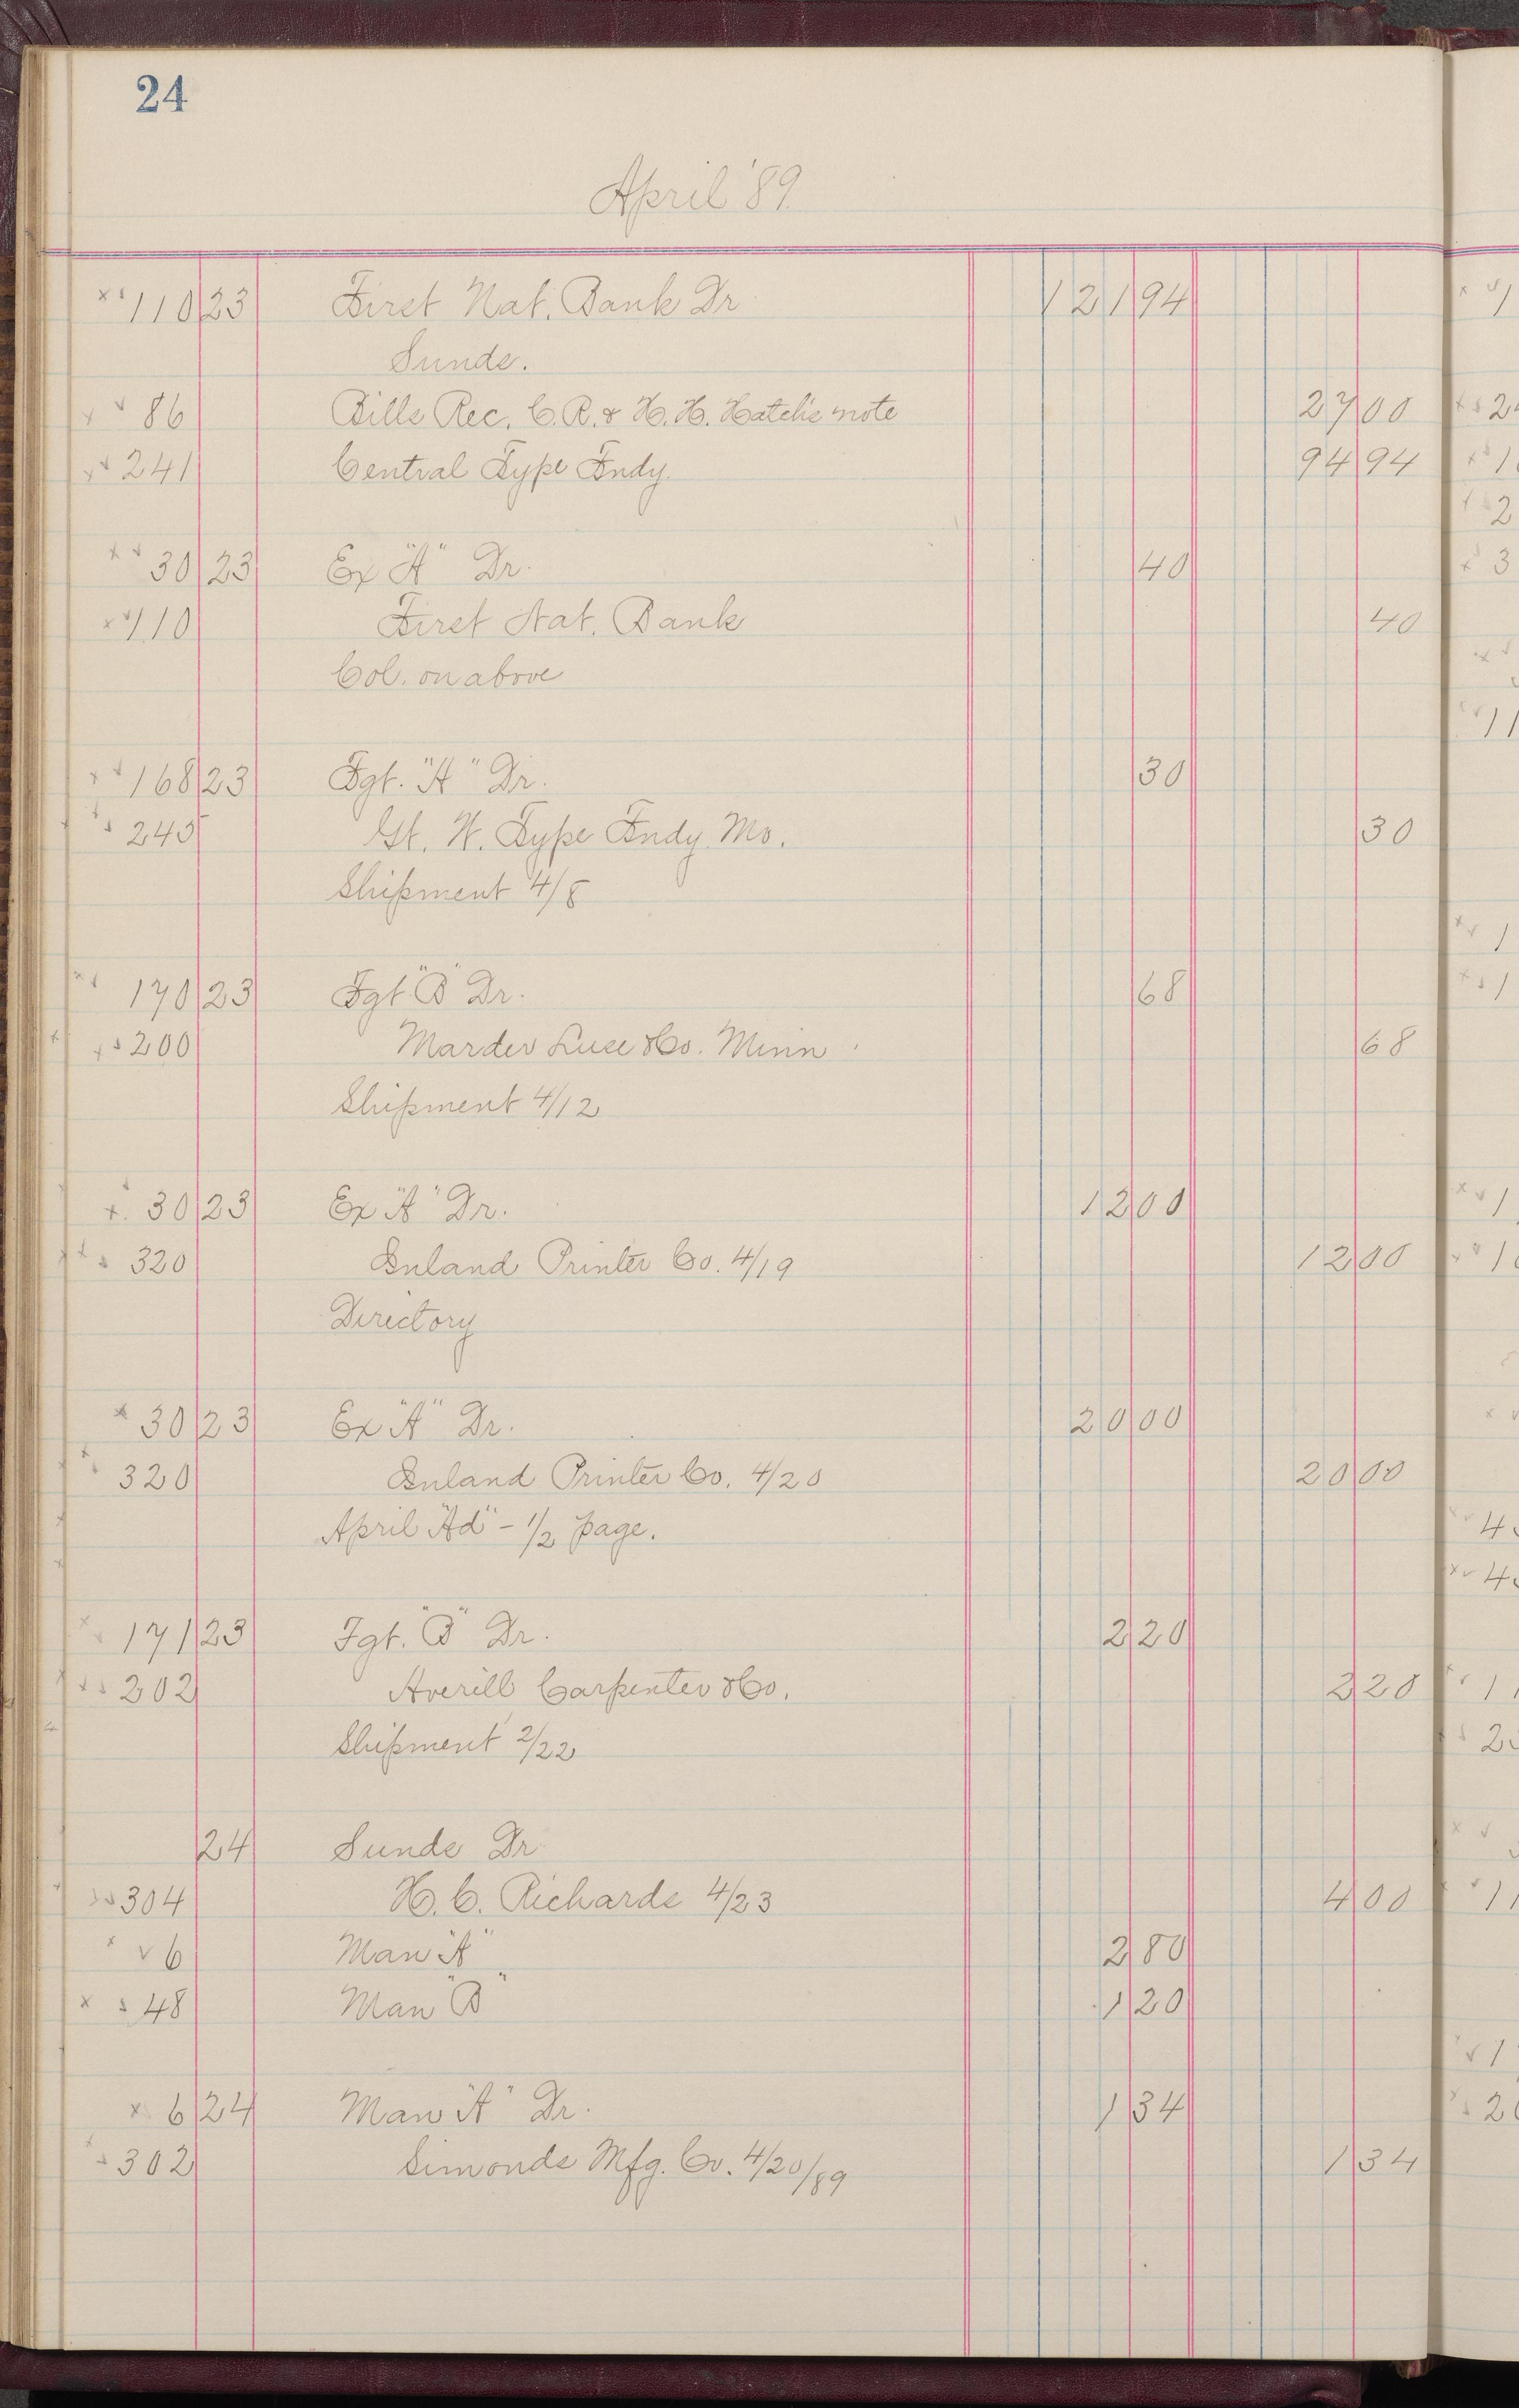 24
April '89.
110 23 First Nat. Bank Dr 121 94
Sunds.
86 Bills Rec. C. R. & H. H. Hatch's note 27 00
241 Central Type Fndy. 94 94
30 23 Ex "A" Dr. 40
110 First Nat. Bank 40
Col. on above
168 23 Fgt. "A" Dr. 30
245 Gt. W. Type Fndy. Mo. 30
Shipment 4/8
170 23 Fgt "B" Dr. 68
200 Marder Luse & Co. Minn 68
Shipment 4/12
30 23 Ex "A" Dr. 12 00
320 Inland Printer Co. 4/19 12 00
Directory
30 23 Ex "A" Dr. 20 00
320 Inland Printer Co. 4/20 20 00
April "Ad" - 1/2 page.
171 23 Fgt. "B" Dr. 2 20
202 Averill Carpenter & Co. 2 20
Shipment 2/22
24 Sunds Dr
304 H. C. Richards 4/23 4 00
6 Man "A" 2 80
48 Man "B" 1 20
6 24 Man "A" Dr. 1 34
302 Simonds Mfg. Co. 4/20/89 1 34